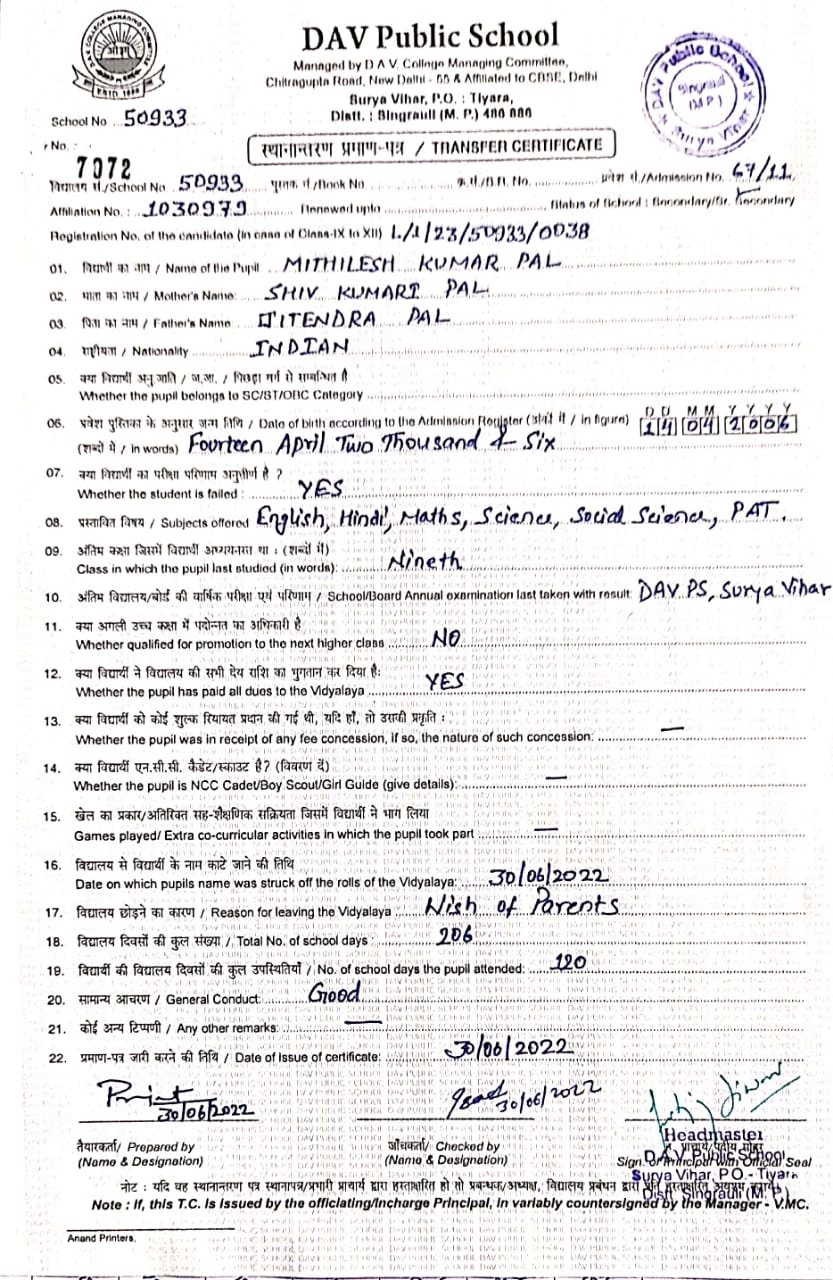 DAV Public School
Managed by D.A.V. College Managing Committee,
Chitragupta Road, New Delhi - 55 & Affiliated to CBSE, Delhi
Surya Vihar, P.O. : Tiyara,
Distt. : Singrauli (M. P.) 486 886
DAV Public School
Singrauli
(M.P.)
Surya Vihar
School No 50933
No. :
7072
स्थानान्तरण प्रमाण-पत्र / TRANSFER CERTIFICATE
विद्यालय सं./School No. 50933 पुस्तक सं./Book No. क्र.सं./S.R. No. प्रवेश सं./Admission No. 67/11
Affiliation No. : 1030979 Renewed upto Status of School : Secondary/Sr. Secondary
Registration No. of the candidate (in case of Class-IX to XII) 1/1/23/50933/0038
01. विद्यार्थी का नाम / Name of the Pupil MITHILESH KUMAR PAL
02. माता का नाम / Mother's Name: SHIV KUMARI PAL
03. पिता का नाम / Father's Name JITENDRA PAL
04. राष्ट्रीयता / Nationality INDIAN
05. क्या विद्यार्थी अनु.जाति / ज.जा. / पिछड़ा वर्ग से सम्बन्धित है
Whether the pupil belongs to SC/ST/OBC Category
06. प्रवेश पुस्तिका के अनुसार जन्म तिथि / Date of birth according to the Admission Register (अंकों में / in figure) D D M M Y Y Y Y
14 04 2006
(शब्दों में / in words) Fourteen April Two Thousand & Six
07. क्या विद्यार्थी का परीक्षा परिणाम अनुत्तीर्ण है ?
Whether the student is failed : YES
08. प्रस्तावित विषय / Subjects offered English, Hindi, Maths, Science, Social Science, PAT.
09. अंतिम कक्षा जिसमें विद्यार्थी अध्ययनरत था : (शब्दों में)
Class in which the pupil last studied (in words): Nineth
10. अंतिम विद्यालय/बोर्ड की वार्षिक परीक्षा एवं परिणाम / School/Board Annual examination last taken with result: DAV PS, Surya Vihar
11. क्या अगली उच्च कक्षा में पदोन्नत का अधिकारी है
Whether qualified for promotion to the next higher class NO
12. क्या विद्यार्थी ने विद्यालय की सभी देय राशि का भुगतान कर दिया है:
Whether the pupil has paid all dues to the Vidyalaya YES
13. क्या विद्यार्थी को कोई शुल्क रियायत प्रदान की गई थी, यदि हाँ, तो उसकी प्रकृति :
Whether the pupil was in receipt of any fee concession, if so, the nature of such concession: —
14. क्या विद्यार्थी एन.सी.सी. कैडेट/स्काउट है? (विवरण दें)
Whether the pupil is NCC Cadet/Boy Scout/Girl Guide (give details): —
15. खेल का प्रकार/अतिरिक्त सह-शैक्षणिक सक्रियता जिसमें विद्यार्थी ने भाग लिया
Games played/ Extra co-curricular activities in which the pupil took part —
16. विद्यालय से विद्यार्थी के नाम काटे जाने की तिथि
Date on which pupils name was struck off the rolls of the Vidyalaya: 30/06/2022
17. विद्यालय छोड़ने का कारण / Reason for leaving the Vidyalaya Wish of Parents
18. विद्यालय दिवसों की कुल संख्या / Total No. of school days : 206
19. विद्यार्थी की विद्यालय दिवसों की कुल उपस्थितियाँ / No. of school days the pupil attended: 120
20. सामान्य आचरण / General Conduct: Good
21. कोई अन्य टिप्पणी / Any other remarks: —
22. प्रमाण-पत्र जारी करने की तिथि / Date of Issue of certificate: 30/06/2022
30/06/2022 30/06/2022
Headmaster
तैयारकर्ता/ Prepared by जाँचकर्ता/ Checked by D.A.V. Public School
(Name & Designation) (Name & Designation) Sign. of Principal with Official Seal
Surya Vihar, P.O.- Tiyara
Distt. Singrauli (M. P.)
नोट : यदि यह स्थानान्तरण पत्र स्थानापन्न/प्रभारी प्राचार्य द्वारा हस्ताक्षरित हो तो प्रबन्धक/अध्यक्ष, विद्यालय प्रबंधन द्वारा
Note : If, this T.C. is issued by the officiating/Incharge Principal, in variably countersigned by the Manager - V.MC.
Anand Printers.